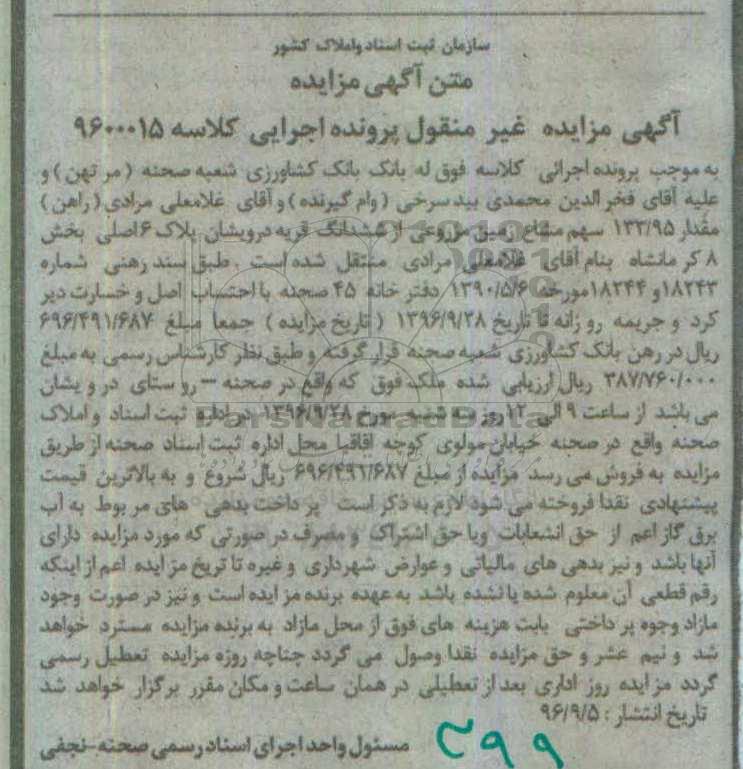 سازمان ثبت اسناد واملاک کشور
متن آگهی مزایده
آگهی مزایده غیر منقول پرونده اجرایی کلاسه ۹۶۰۰۰۱۵
به موجب پرونده اجرائی کلاسه فوق له بانک بانک کشاورزی شعبه صحنه (مرتهن) و
علیه آقای فخرالدین محمدی بیدسرخی (وام گیرنده) و آقای غلامعلی مرادی (راهن)
مقدار ۱۳۳/۹۵ سهم مشاع زمین مزروعی از ششدانگ قریه درویشان پلاک ۶ اصلی بخش
۸ کرمانشاه بنام آقای غلامعلی مرادی منتقل شده است . طبق سند رهنی شماره
۱۸۲۴۳ و ۱۸۲۴۴ مورخه ۱۳۹۰/۵/۶ دفترخانه ۴۵ صحنه با احتساب اصل و خسارت دیر
کرد و جریمه روزانه تا تاریخ ۱۳۹۶/۹/۲۸ (تاریخ مزایده) جمعا مبلغ ۶۹۶/۴۹۱/۶۸۷
ریال در رهن بانک کشاورزی شعبه صحنه قرار گرفته و طبق نظر کارشناس رسمی به مبلغ
۳۸۷/۷۶۰/۰۰۰ ریال ارزیابی شده ملک فوق که واقع در صحنه – روستای درویشان
می باشد از ساعت ۹ الی ۱۲ روز سه شنبه مورخ ۱۳۹۶/۹/۲۸ در اداره ثبت اسناد و املاک
صحنه واقع در صحنه خیابان مولوی کوچه اقاقیا محل اداره ثبت اسناد صحنه از طریق
مزایده به فروش می رسد مزایده از مبلغ ۶۹۶/۴۹۱/۶۸۷ ریال شروع و به بالاترین قیمت
پیشنهادی نقدا فروخته می شود لازم به ذکر است پرداخت بدهی های مربوط به آب
برق گاز اعم از حق انشعابات ویا حق اشتراک و مصرف در صورتی که مورد مزایده دارای
آنها باشد و نیز بدهی های مالیاتی و عوارض شهرداری و غیره تا تریخ مزایده اعم از اینکه
رقم قطعی آن معلوم شده یا نشده باشد به عهده برنده مزایده است و نیز در صورت وجود
مازاد وجوه پرداختی بابت هزینه های فوق از محل مازاد به برنده مزایده مسترد خواهد
شد و نیم عشر و حق مزایده نقدا وصول می گردد چناچه روزه مزایده تعطیل رسمی
گردد مزایده روز اداری بعد از تعطیلی در همان ساعت و مکان مقرر برگزار خواهد شد
تاریخ انتشار : ۹۶/۹/۵
مسئول واحد اجرای اسناد رسمی صحنه-نجفی
ParsNamadData